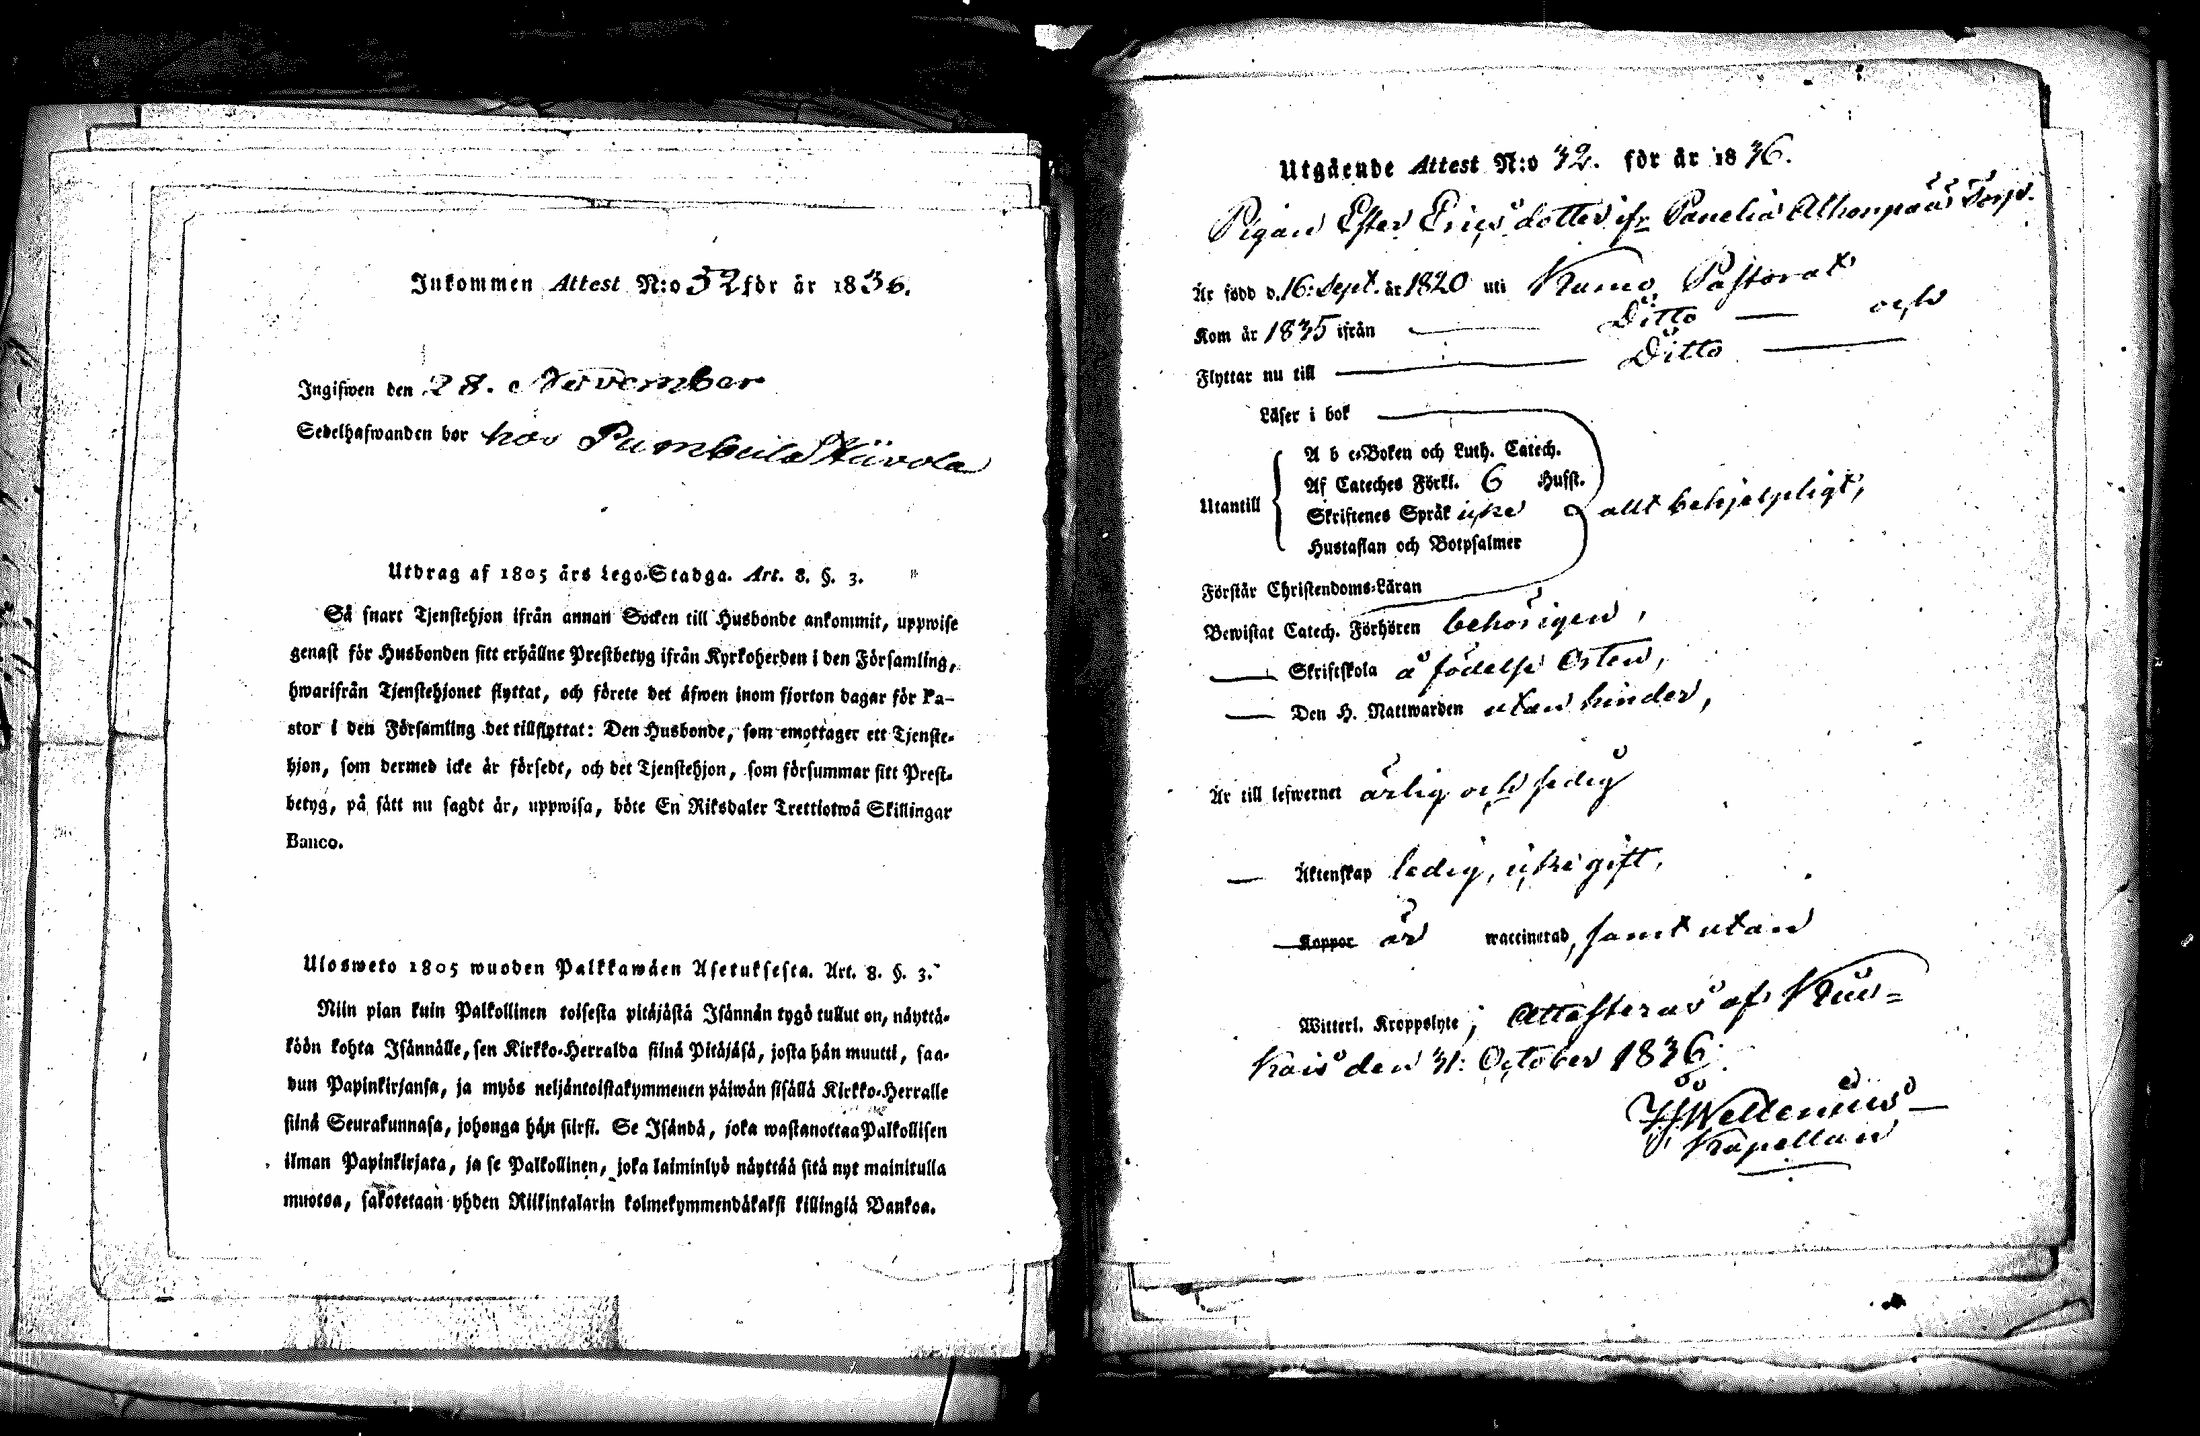 Inkommen Attest N:o 52 för år 1836.
Ingifwen den 28. November
Sedelhafwanden bor hos Pumbula Kiivola
Utdrag af 1805 års Lego-Stadga. Art. 8. §. 3.
Så snart Tjenstehjon ifrån annan Socken till Husbonde ankommit, uppwise
genast för Husbonden sitt erhållne Prestbetyg ifrån Kyrkoherden i den Församling,
hwarifrån Tjenstehjonet flyttat, och förete det äfwen inom fjorton dagar för Pa-
stor i den Församling det tillflyttat: Den Husbonde, som emottager ett Tjenste-
hjon, som dermed icke är försedt, och det Tjenstehjon, som försummar sitt Prest-
betyg, på sätt nu sagdt är, uppwisa, böte En Riksdaler Trettiotwå Skillingar
Banco.
Ulosweto 1805 wuoden Palkkawäen Asetuksesta. Art. 8. §. 3.
Niin pian kuin Palkollinen toisesta pitäjästä Isännän tygö tullut on, näyttä-
köön kohta Isännälle, sen Kirkko-Herralda siinä Pitäjäsä, josta hän muutti, saa-
dun Papinkirjansa, ja myös neljäntoistakymmenen päiwän sisällä Kirkko-Herralle
siinä Seurakunnasa, johonga hän siirsi. Se Isändä, joka wastanottaa Palkollisen
ilman Papinkirjata, ja se Palkollinen, joka laiminlyö näyttää sitä nyt mainitulla
muotoa, sakotetaan yhden Riikintalarin kolmekymmendäkaksi killingiä Bankoa.
Utgående Attest N:o 32. för år 1836.
Pigan Ester Ericsdotter ifr Panelia Alhonpää Torp.
Är född d. 16: Sept. år 1820 uti Kumo Pastorat
Kom år 1835 ifrån — Ditto — och
Flyttar nu till — Ditto —
Läser i bok
A b c-Boken och Luth. Catech.
Af Cateches Förkl. 6 Hufst.
Utantill Skriftenes Språk icke allt behjelpligt,
Hustaflan och Botpsalmer
Förstår Christendoms-Läran
Bewistat Catech. Förhören behörigen,
— Skriftskola å födelse Orten,
— Den H. Nattwarden utan hinder,
Är till lefwernet ärlig och sedig
— Äktenskap ledig, icke gift,
Koppor är waccinerad, samt utan
Witterl. Kroppslyte; Attesteras af Kiu-
kais den 31: October 1836.
Wellenius
Kapellan